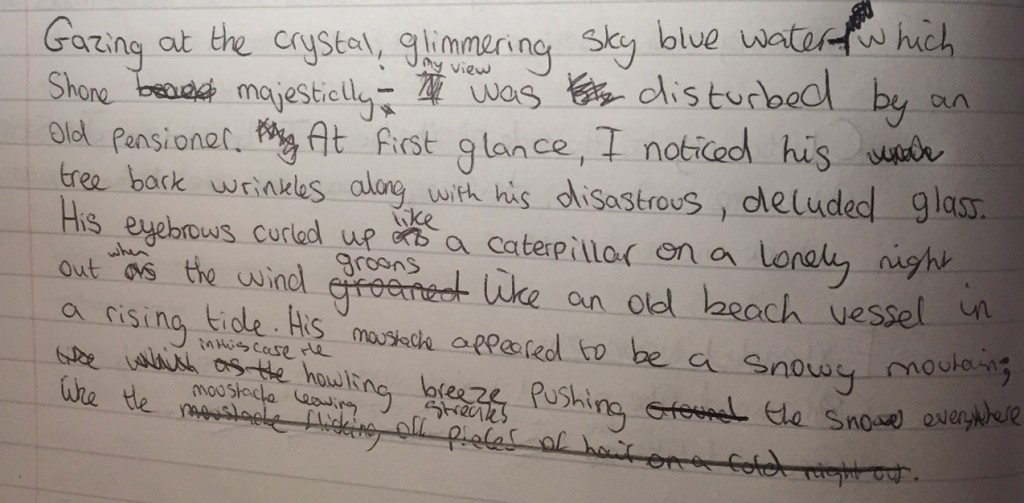 Gazing at the crystal, glimmering sky blue water which
my view
Shone majesticlly - was disturbed by an
old pensioner. At first glance, I noticed his
tree bark wrinkles along with his disastrous, deluded glass.
like
His eyebrows curled up a caterpillar on a lonely night
when groans
out the wind groaned like an old beach vessel in
a rising tide. His moustache appeared to be a snowy mountain;
in this case the
as the howling breeze pushing the snow everywhere
moustache leaving streaks
like the moustache flicking off pieces of hair on a cold night out.